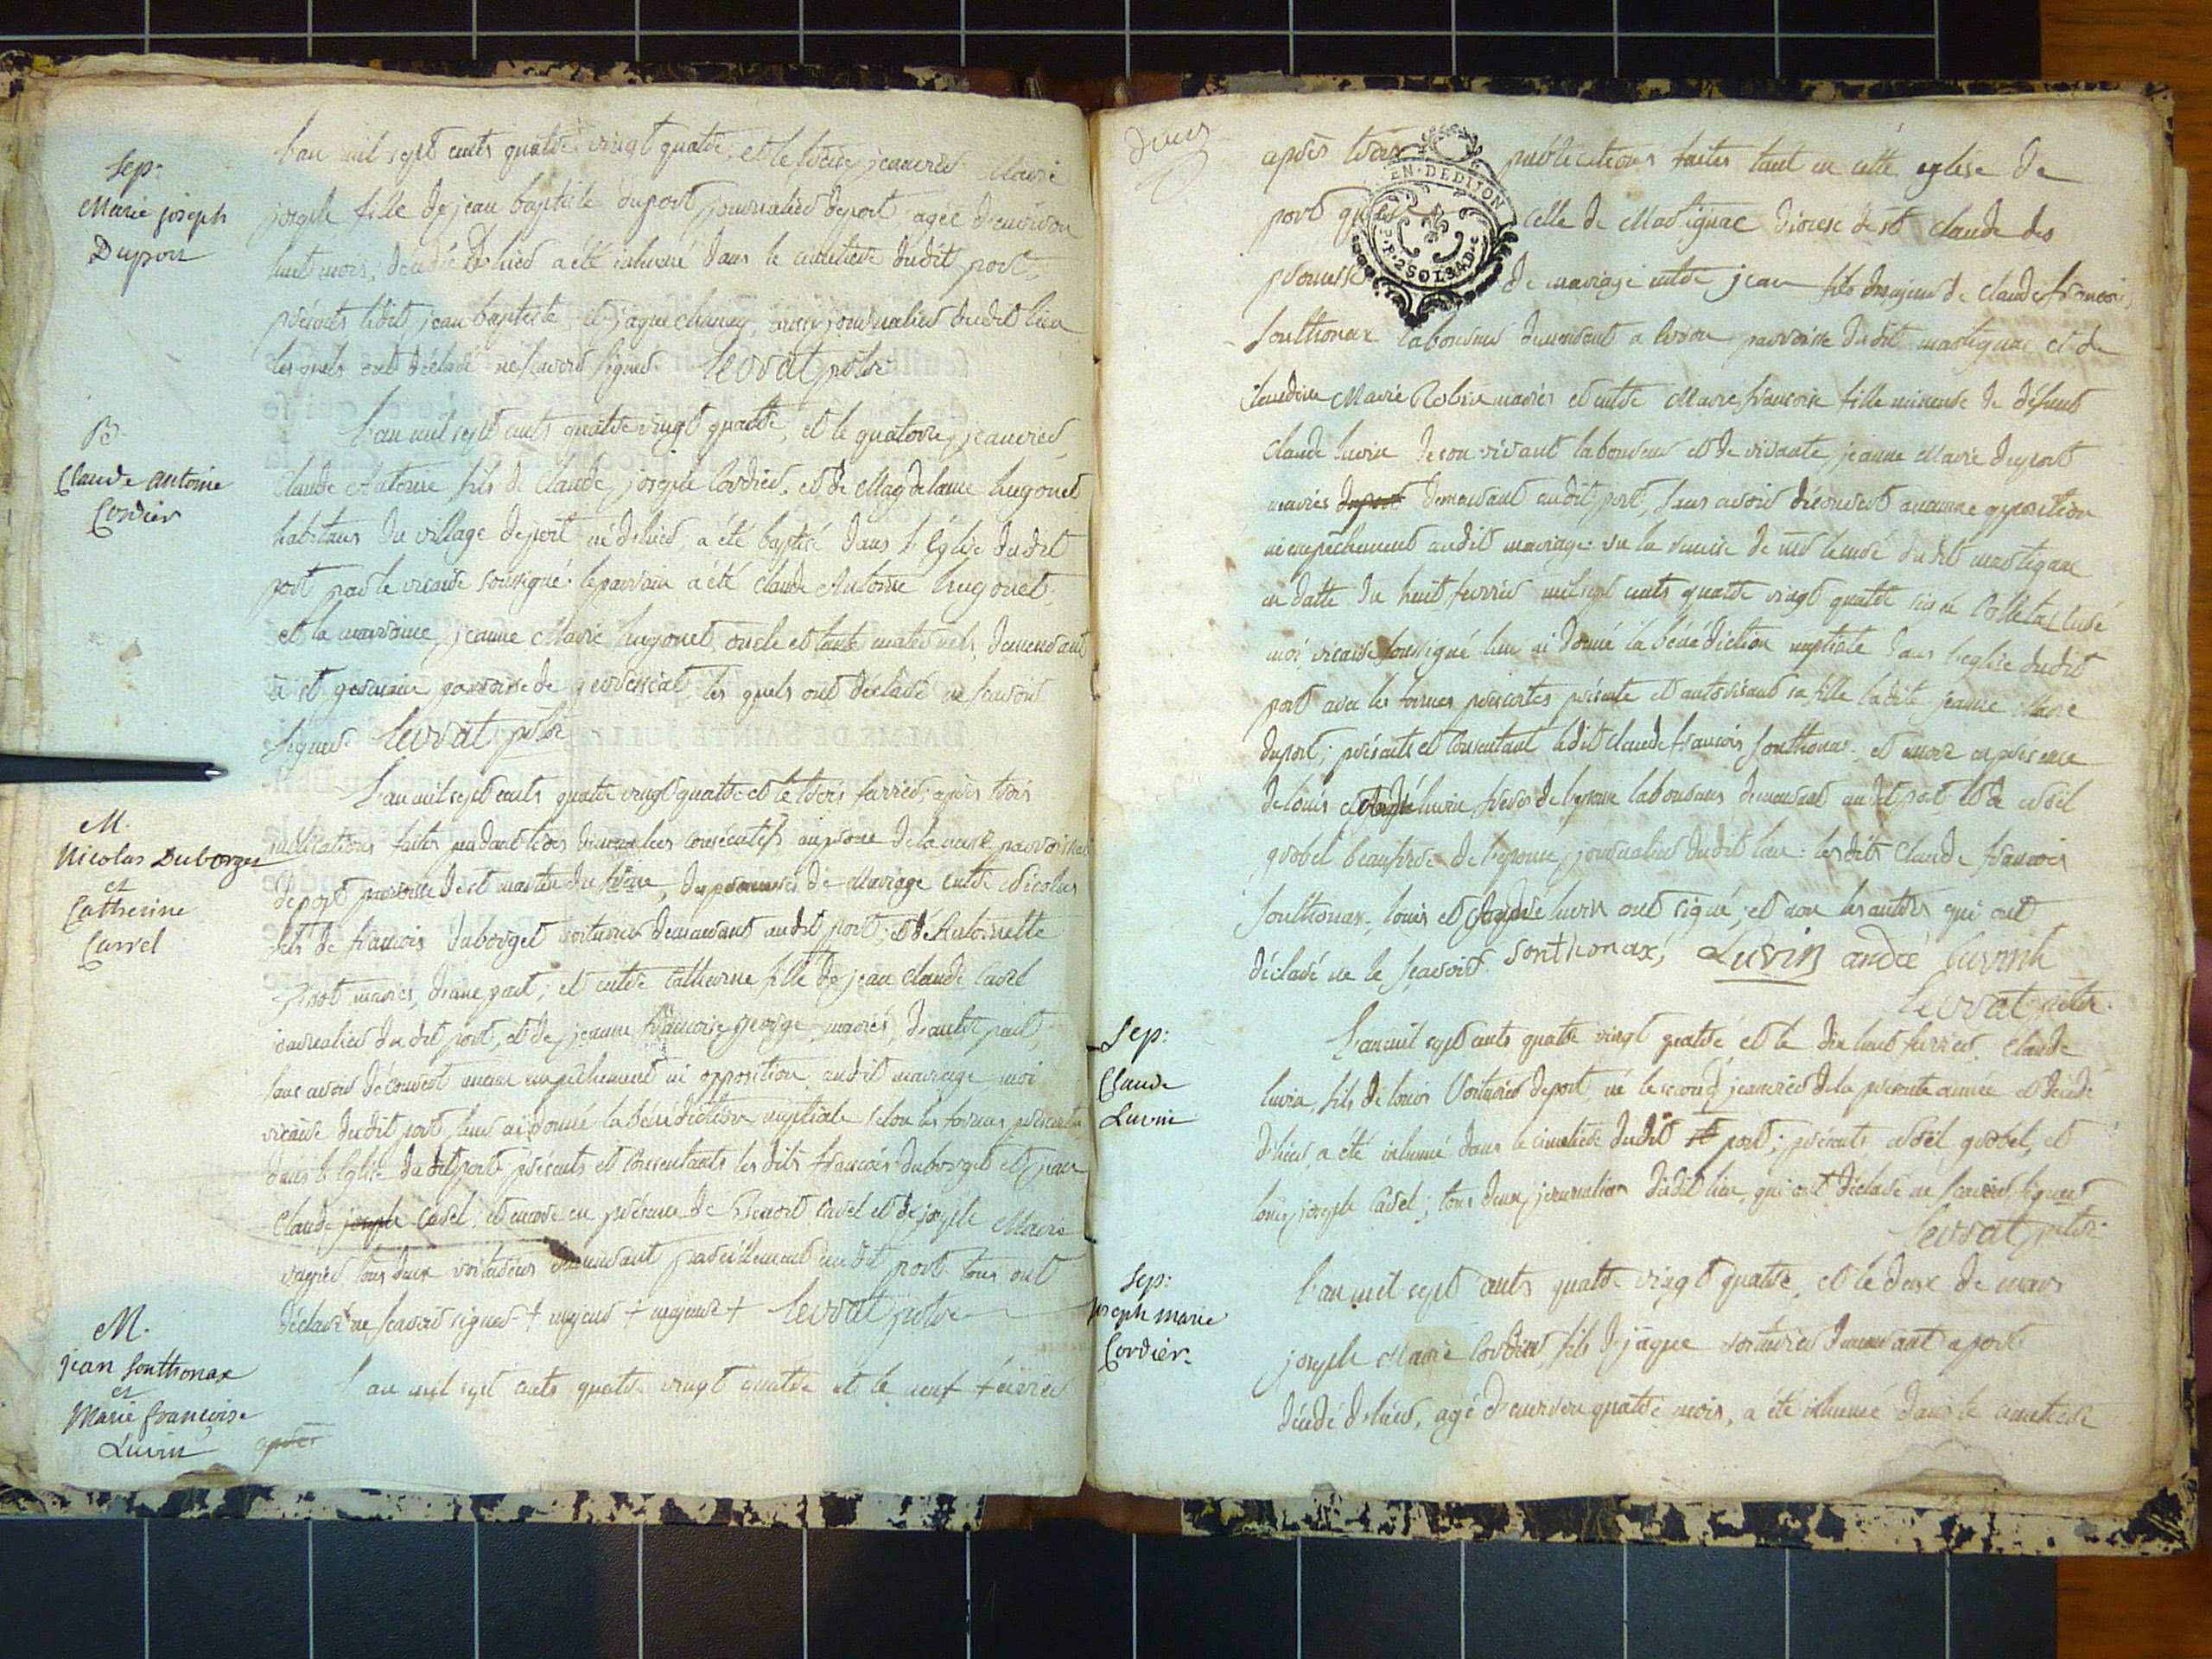 Sep:
Marie joseph
Duport
L'an mil sept cents quatre vingt quatre, et le treize janvier Marie
joseph fille de jean baptiste duport journalier de port agée d'environ
huit mois, décédée d'hier a été inhumé dans le cimetiere dudit port,
présents ledit jean baptiste, et jaque chanay, aussi journalier dudit lieu
lesquels ont déclaré ne scavoir signer. Levrat ptre
B.
Claude antoine
Cordier
L'an mil sept cents quatre vingt quatre, et le quatorze janvier,
Claude Antoine fils de Claude joseph Cordier, et de Magdelaine hugonet
habitans du village de port né d'hier, a été baptisé dans l'Eglise dudit
port par le vicaire soussigné. le parrain a été claude Antoine hugonet,
et la marraine jeanne Marie hugonet, oncle et tante maternels, demeurant
a st germain parroisse de les quels ont déclaré ne scavoir
signer. Levrat ptre
M.
Nicolas Duborget
et
Catherine
Carrel
L'an mil sept cents quatre vingt quatre et le trois fevrier, apres trois
publications faites pendant trois dimanches consécutifs au prone de la messe parroissiale
de port parroisse de st martin du frêne, des promesses de Mariage entre Nicolas
fils de francois duborget voiturier demeurant audit port, et de Antoinette
mariés, d'une part; et entre Catherine fille de jean claude Carel
journalier dudit port, et de jeanne francoise george, mariés, d'autre part,
sans avoir découvert aucun empêchement ni opposition audit mariage moi
vicaire dudit port, leur ai donné la bénédiction nuptiale selon les formes préscrites
dans l'Eglise dudit port présents et consentants les dits francois duborget et jean
Claude joseph Carel, et encore en présence de Benoit Carel et de joseph Marie
tous deux voituriers demeurant pareillement audit port tous ont
déclaré ne scavoir signer + majeur + majeure + Levrat ptre
M.
jean Sonthonax
et
Marie françoise
Luvin
L'an mil sept cents quatre vingt quatre et le neuf fevrier
apres
deux
apres trois publications faites tant en cette eglise de
port que celle de Martignac diocese de st Claude des
promesses de mariage entre jean fils majeur de claude francois
Sonthonax laboureur demeurant a parroisse dudit martignac et de
Claudine Marie Robin mariés et entre Marie francoise fille mineure de défunt
claude luvin de son vivant laboureur et de vivante jeanne Marie duport
mariés duport demeurant audit port, sans avoir découvert aucunne opposition
ni empêchement audit mariage. vu la remise de mr le curé dudit martignac
en datte du huit fevrier mil sept cents quatre vingt quatre signé Colleta curé
moi vicaire soussigné leur ai donné la bénédiction nuptiale dans l'eglise dudit
port avec les formes préscrites présente et autorisant sa fille ladite jeanne Marie
duport; présents et consentant ledit claude francois sonthonax. et encore en présence
de louis et andré luvin freres de l'epouse laboureurs demeurant audit port et de Noël
grobel beaufrere de l'epouse, journalier dudit lieu: lesdits claude francois
sonthonax, louis et andré luvin ont signé, et non les autres qui ont
déclaré ne le scavoir. sonthonax, Luvin andré luvinh
Levrat ptre.
Sep:
Claude
Luvin
L'an mil sept cents quatre vingt quatre et le dix huit fevrier. Claude
luvin, fils de louis Voiturier de port, né le second janvier de la présente année et décédé
d'hier, a été inhumé dans le cimetiere dudit st port; présents, Noël grobel, et
louis joseph Carel; tous deux journaliers dudit lieu, qui ont déclaré ne scavoir signer
Levrat ptre.
Sep:
joseph marie
Cordier.
L'an mil sept cents quatre vingt quatre, et le de mars
joseph Marie Cordier, fils de jaque voiturier demeurant a port
décédé d'hier, agé d'environ quatre mois, a été inhumé dans le cimetiere
EN. DE DIJON
2 SOLS 4 D.